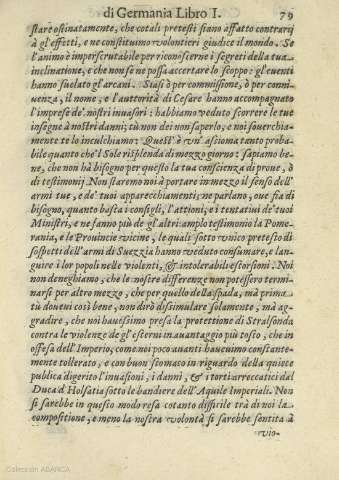 di Germania Libro I. 79
stare ostinatamente, che cotali pretesti siano affatto contrarij
à gl'effetti, e ne constituimo volontieri giudice il mondo. Se
l'animo è imperscrutabile per riconoscere i segreti della tua
inclinatione, e che non se ne possa accertare lo scoppo: gl'euenti
hanno suelato gl'arcani. Stasi ò per commissione, ò per conni-
uenza, il nome, e l'auttorità di Cesare hanno accompagnato
l'imprese de' nostri inuasori: habbiamo veduto scorrere le tue
insegne à nostri danni; tù non dei non saperlo, e noi souerchia-
mente te lo inculchiamo: Quest'è vn' asioma tanto proba-
bile quanto che'l Sole risplenda di mezzo giorno: sapiamo be-
ne, che non hà bisogno per questo la tua conscienza di proue, ò
di testimonij. Non staremo noi à portare in mezzo il senso dell'
armi tue, e de' tuoi apparecchiamenti; ne parlano, oue fia di
bisogno, quanto basta i consigli, l'attioni, e i tentatiui de' tuoi
Ministri, e ne fanno più de gl'altri amplo testimonio la Pome-
rania, e le Prouincie vicine, le quali sotto vnico pretesto di
sospetti dell'armi di Suezzia hanno veduto consumare, e lan-
guire i lor popoli nelle violenti, & intolerabili estorsioni. Noi
non deneghiamo, che le nostre differenze non potessero termi-
narsi per altro mezzo, che per quello della spada, mà prima
tù doueui così bene, non dirò dissimulare solamente, mà ag-
gradire, che noi hauessimo presa la protettione di Seralsonda
contra le violenze de gl'esterni in auantaggio più tosto, che in
offesa dell'Imperio, come noi poco auanti haueuimo constante-
mente tollerato, e con buon stomaco in riguardo della quiete
publica digerito l'inuasioni, i danni, & i torti arreccatici dal
Duca d'Holsatia sotto le bandiere dell'Aquile Imperiali. Non
si sarebbe in questo modo resa cotanto difficile trà di noi la
compositione, e meno la nostra volontà si sarebbe sentita à
vio-
Colección ABANCA